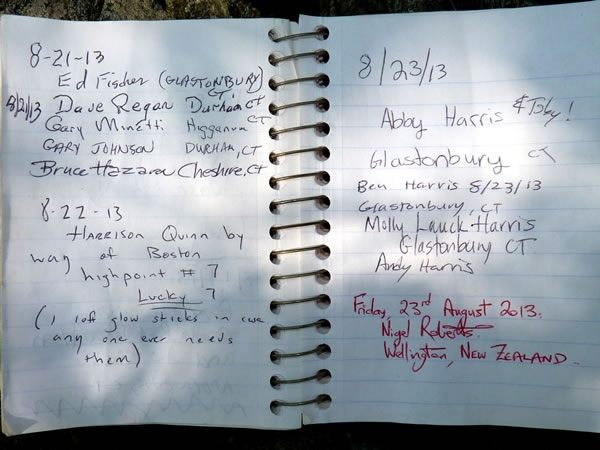 8-21-13
Ed Fischer (GLASTONBURY) CT.
8/21/13 Dave Regan Durham CT
Gary Minetti Higganum CT
GARY JOHNSON DURHAM, CT
Bruce Cheshire, CT
8-22-13
HARRISON Quinn by
way of Boston
highpoint # 7
Lucky 7
(I left glow sticks in case
any one ever needs
them)
8/23/13
Abby Harris & Toby!
Glastonbury CT
Ben Harris 8/23/13
Glastonbury, CT
Molly Lauck Harris
Glastonbury CT
Andy Harris
Friday, 23rd August 2013.
Nigel Roberts.
Wellington, NEW ZEALAND.